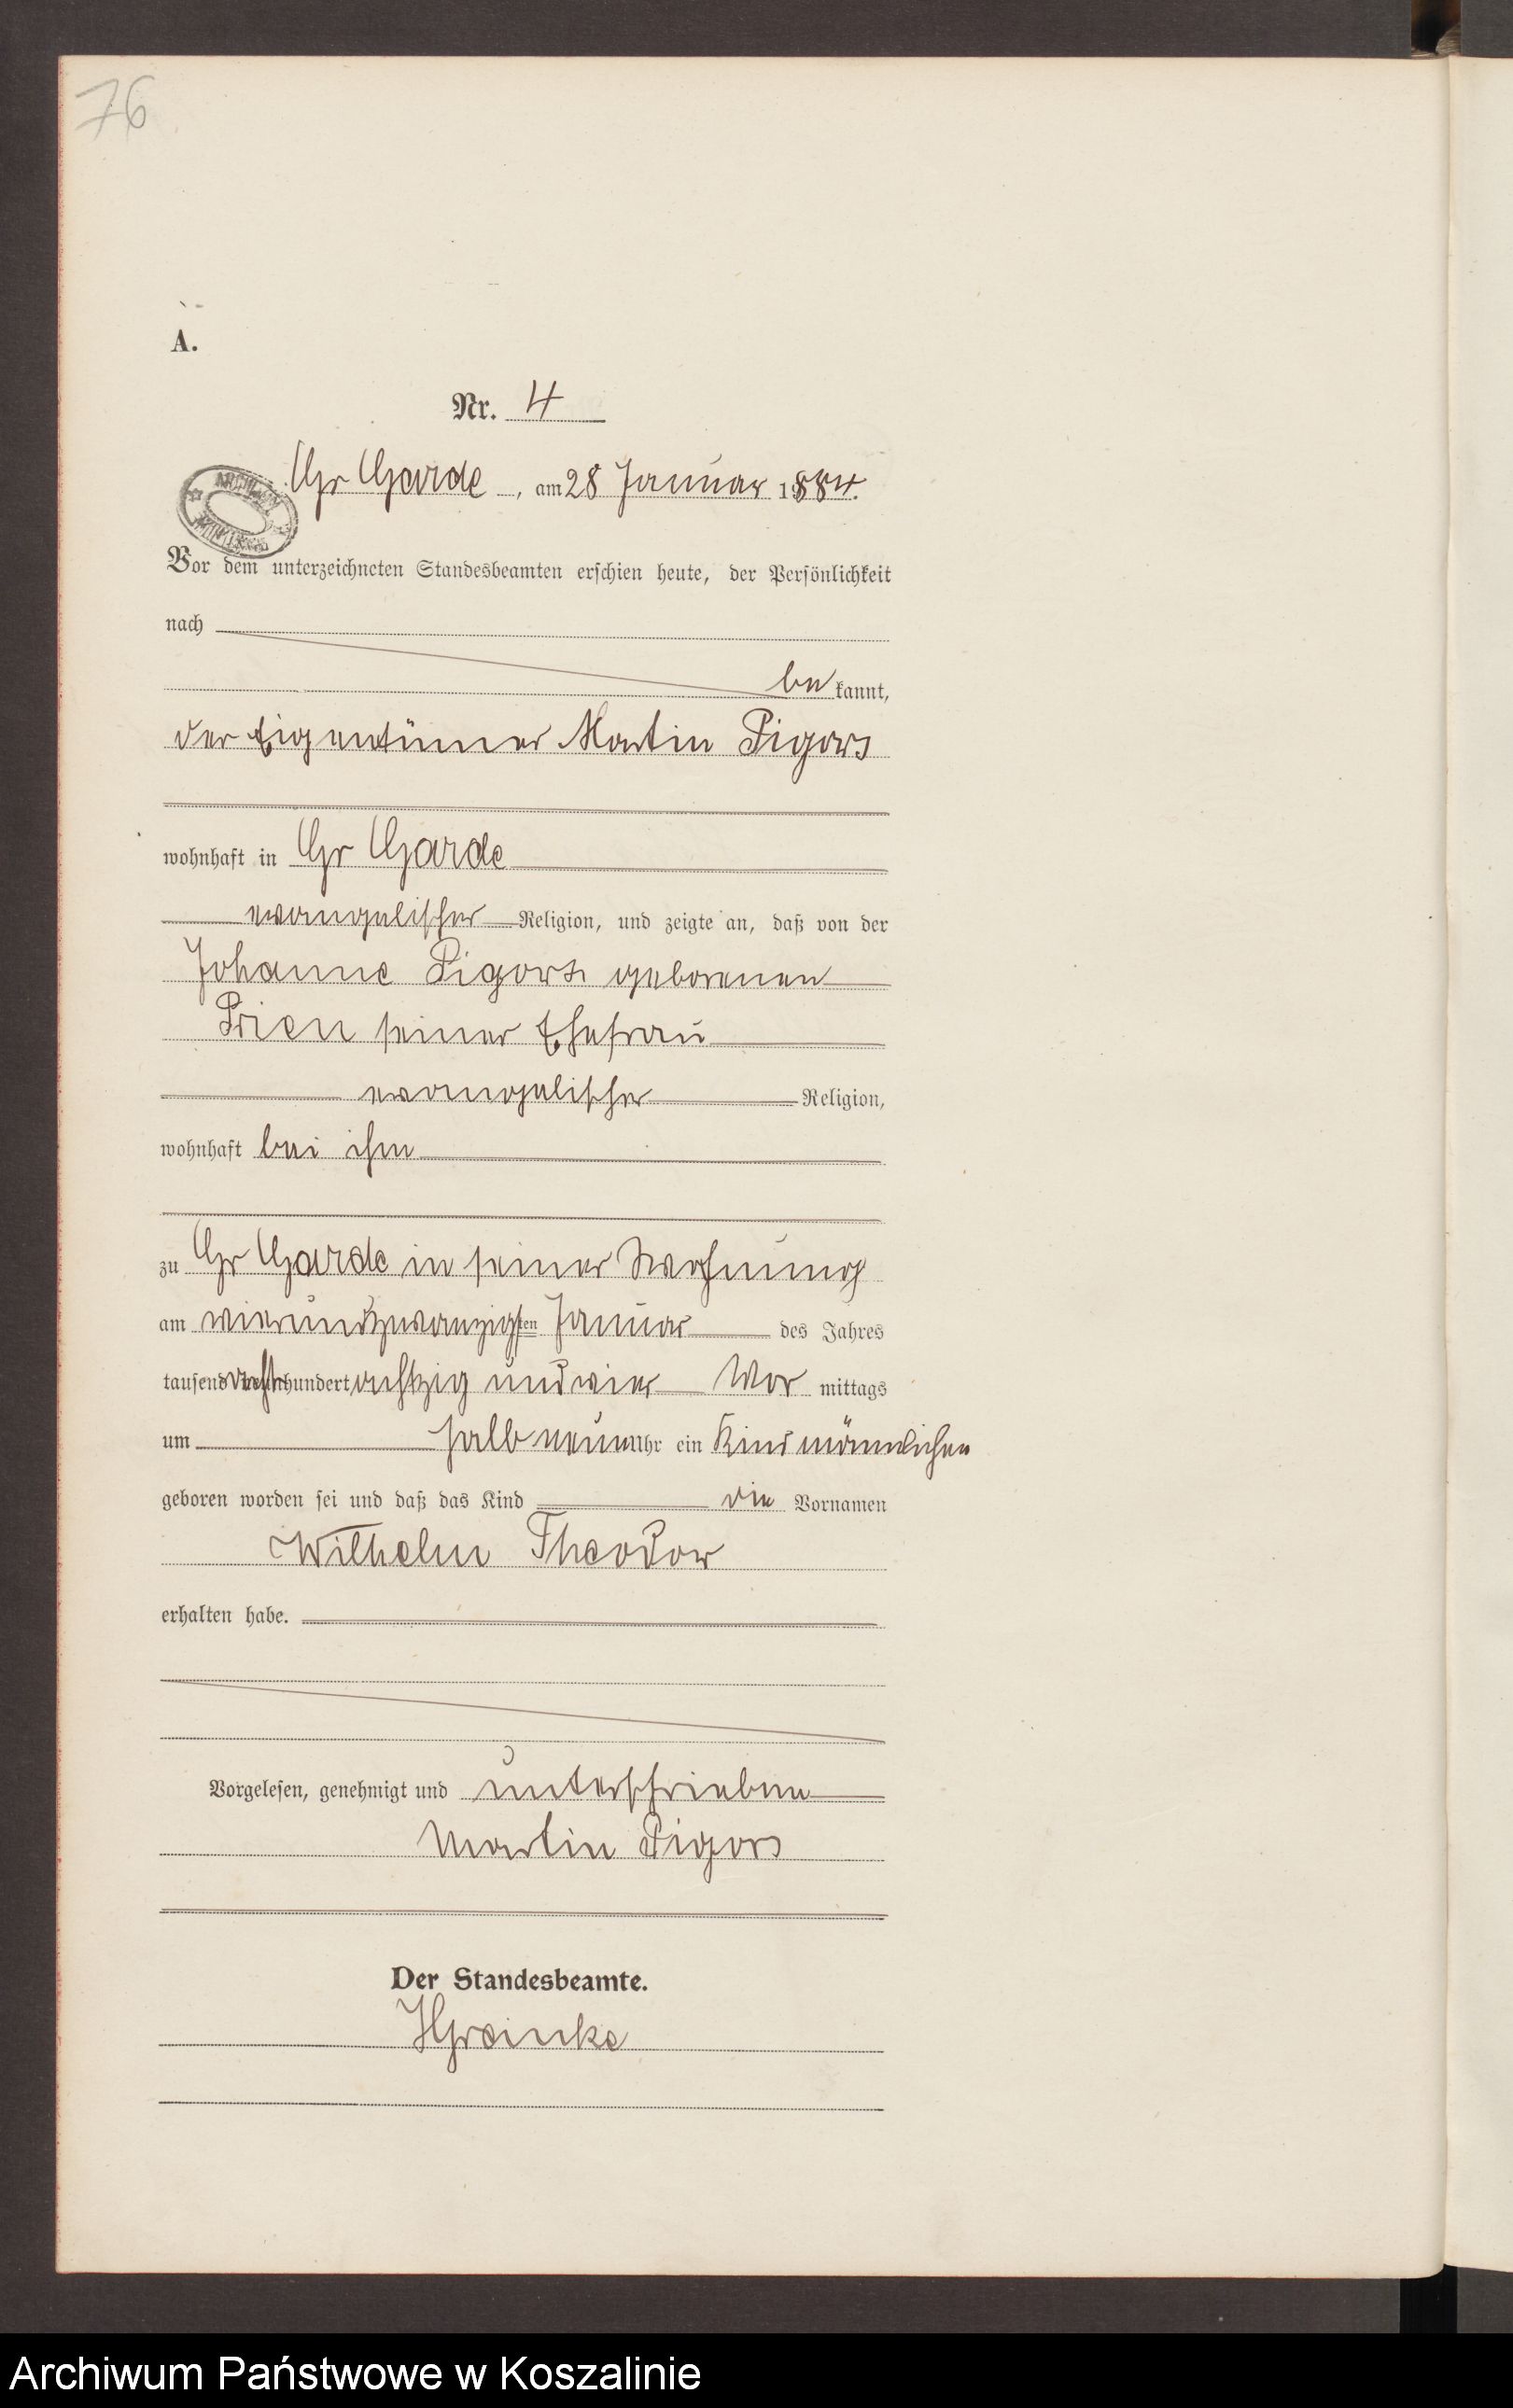 76
A.
Nr. 4
Gr Garde, am 28 Januar 1884.
Vor dem unterzeichneten Standesbeamten erschien heute, der Persönlichkeit
nach
be kannt,
der Eigentümer Martin Pigors
wohnhaft in Gr Garde
evangelischer Religion, und zeigte an, daß von der
Johanne Pigors geborenen
Prien seiner Ehefrau
evangelischer Religion,
wohnhaft bei ihm
zu Gr Garde in seiner Wohnung
am vierundzwanzigsten Januar des Jahres
tausend acht hundert achtzig und vier Vor mittags
um halb neun Uhr ein Kind männlichen
geboren worden sei und daß das Kind die Vornamen
Wilhelm Theodor
erhalten habe.
Vorgelesen, genehmigt und unterschrieben
Martin Pigors
Der Standesbeamte.
Archiwum Państwowe w Koszalinie